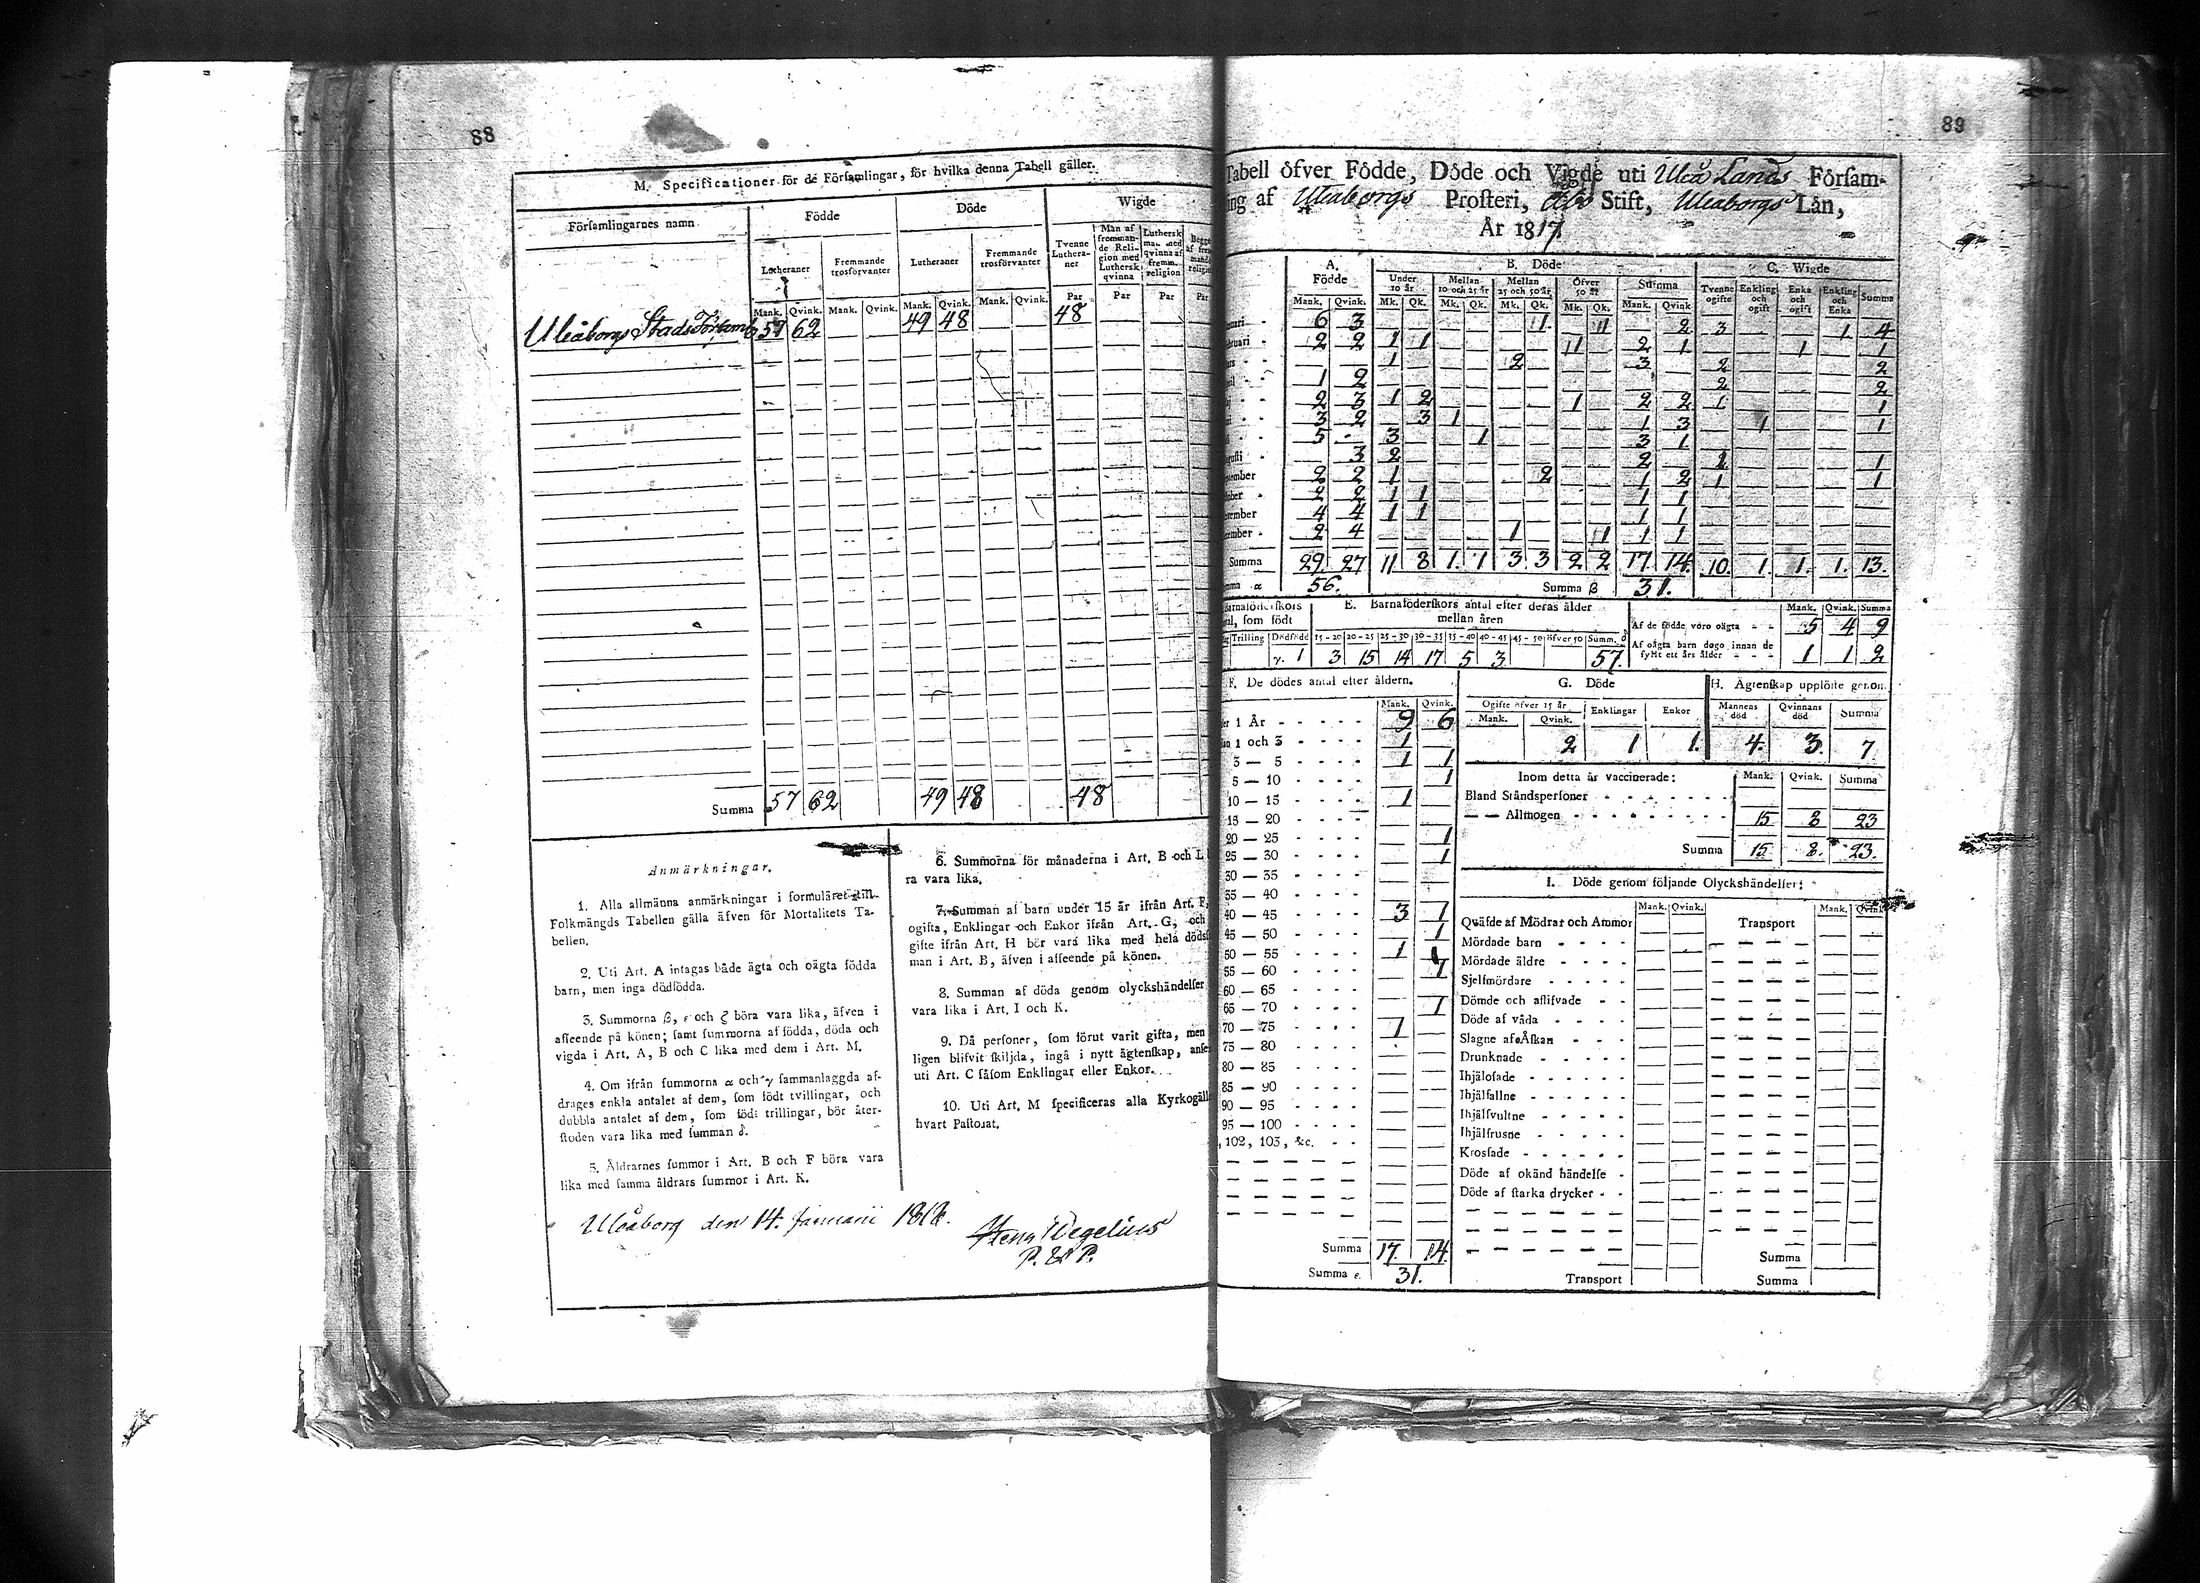 88
M. Specificationer för de Församlingar, för hvilka denna Tabell gäller.
Församlingarnes namn
Födde
Döde
Wigde
Lutheraner
Fremmande trosförvanter
Lutheraner
Fremmande trosförvanter
Tvenne Lutheraner
Man af fremmande Religion med Luthersk qvinna
Luthersk man med qvinna af fremm. religion
Mank. Qvink. Mank. Qvink. Mank. Qvink. Mank. Qvink. Par Par Par Par
Uleåborgs Stads Församl 57 62 49 48 48
Summa 57 62 49 48 48
Anmärkningar.
1. Alla allmänna anmärkningar i formuläret till
Folkmängds Tabellen gälla äfven för Mortalitets Ta-
bellen.
2. Uti Art. A intagas både ägta och oägta födda
barn, men inga dödfödda.
3. Summorna β, ε och ζ böra vara lika, äfven i
afseende på könen; samt summorna af födda, döda och
vigda i Art. A, B och C lika med dem i Art. M.
4. Om ifrån summorna α och γ sammanlaggda af-
drages enkla antalet af dem, som födt tvillingar, och
dubbla antalet af dem, som födt trillingar, bör åter-
stoden vara lika med summan δ.
5. Åldrarnes summor i Art. B och F böra vara
lika med samma åldrars summor i Art. K.
6. Summorna för månaderna i Art. B och L
ra vara lika.
7. Summan af barn under 15 år ifrån Art. F,
ogifta, Enklingar och Enkor ifrån Art. G, och
gifte ifrån Art. H bör vara lika med hela döds
man i Art. B, äfven i afseende på könen.
8. Summan af döda genom olyckshändelser
vara lika i Art. I och K.
9. Då personer, som förut varit gifta, men
ligen blifvit skiljda, ingå i nytt ägtenskap, anse
uti Art. C såsom Enklingar eller Enkor.
10. Uti Art. M specificeras alla Kyrkogäll
hvart Pastorat.
Uleåborg den 14. Januarii 1818.
Wegelius
P. & P.
89
Tabell öfver Födde, Döde och Vigde uti Uleå Lands Försam-
ing af Uleåborgs Prosteri, Åbo Stift, Uleåborgs Län,
År 1817.
A. Födde
B. Döde
C. Wigde
Under 10 år
Mellan 10 och 25 år
Mellan 25 och 50 år
Öfver 50 år
Summa
Tvenne ogifte
Enkling och ogift
Enka och ogift
Enkling och Enka
Summa
Mank. Qvink. Mk. Qk. Mk. Qk. Mk. Qk. Mk. Qk. Mank. Qvink
nuari 6 3 1 1 2 3 1 4
bruari 2 2 1 1 1 2 1 1 1
ars 1 2 3 2 2
il 1 2 2 2
2 3 1 2 1 2 2 1 1
3 2 3 1 1 3 1 1
5 3 1 3 1
gusti 3 2 2 1 1
tember 2 2 1 2 1 2 1 1
tober 2 2 1 1 1 1
vember 4 4 1 1 1 1
cember 2 4 1 1 1 1
Summa 29. 27 11 8 1. 1 3 3 2 2 17 14. 10. 1 1. 1. 13.
mma α 56. Summa β 31.
Barnaföderskors
tal, som födt
Trilling Dödfödd
γ. 1
E. Barnaföderskors antal efter deras ålder
mellan åren
15-20 20-25 25-30 30-35 35-40 40-45 45-50 öfver 50 Summ. δ
3 15 14 17 5 3 57.
Mank. Qvink. Summa
Af de födde voro oägta 5 4 9
Af oägta barn dogo innan de
fyllt ett års ålder 1 1 2
F. De dödes antal efter åldern.
Mank. Qvink.
er 1 År 9 6
an 1 och 3 1
3 — 5 1 1
5 — 10 1
10 — 15 1
15 — 20
20 — 25 1
25 — 30 1
30 — 35
35 — 40
40 — 45 3 1
45 — 50 1
50 — 55 1
55 — 60 1
60 — 65
65 — 70 1
70 — 75 1
75 — 80
80 — 85
85 — 90
90 — 95
95 — 100
, 102, 103, &c.
Summa 17. 14.
Summa ε. 31.
G. Döde
Ogifte öfver 15 år
Enklingar
Enkor
Mank. Qvink.
2 1 1.
H. Ägtenskap upplöste genom
Mannens död
Qvinnans död
Summa
4. 3. 7
Inom detta år vaccinerade: Mank. Qvink. Summa
Bland Ståndspersoner
— — Allmogen 15 8 23
Summa 15 8. 23.
I. Döde genom följande Olyckshändelser:
Mank. Qvink. Mank. Qvink
Qväfde af Mödrar och Ammor Transport
Mördade barn
Mördade äldre
Sjelfmördare
Dömde och aflifvade
Döde af våda
Slagne af Åskan
Drunknade
Ihjälosade
Ihjälfallne
Ihjälsvultne
Ihjälfrusne
Krossade
Döde af okänd händelse
Döde af starka drycker
Summa
Transport Summa